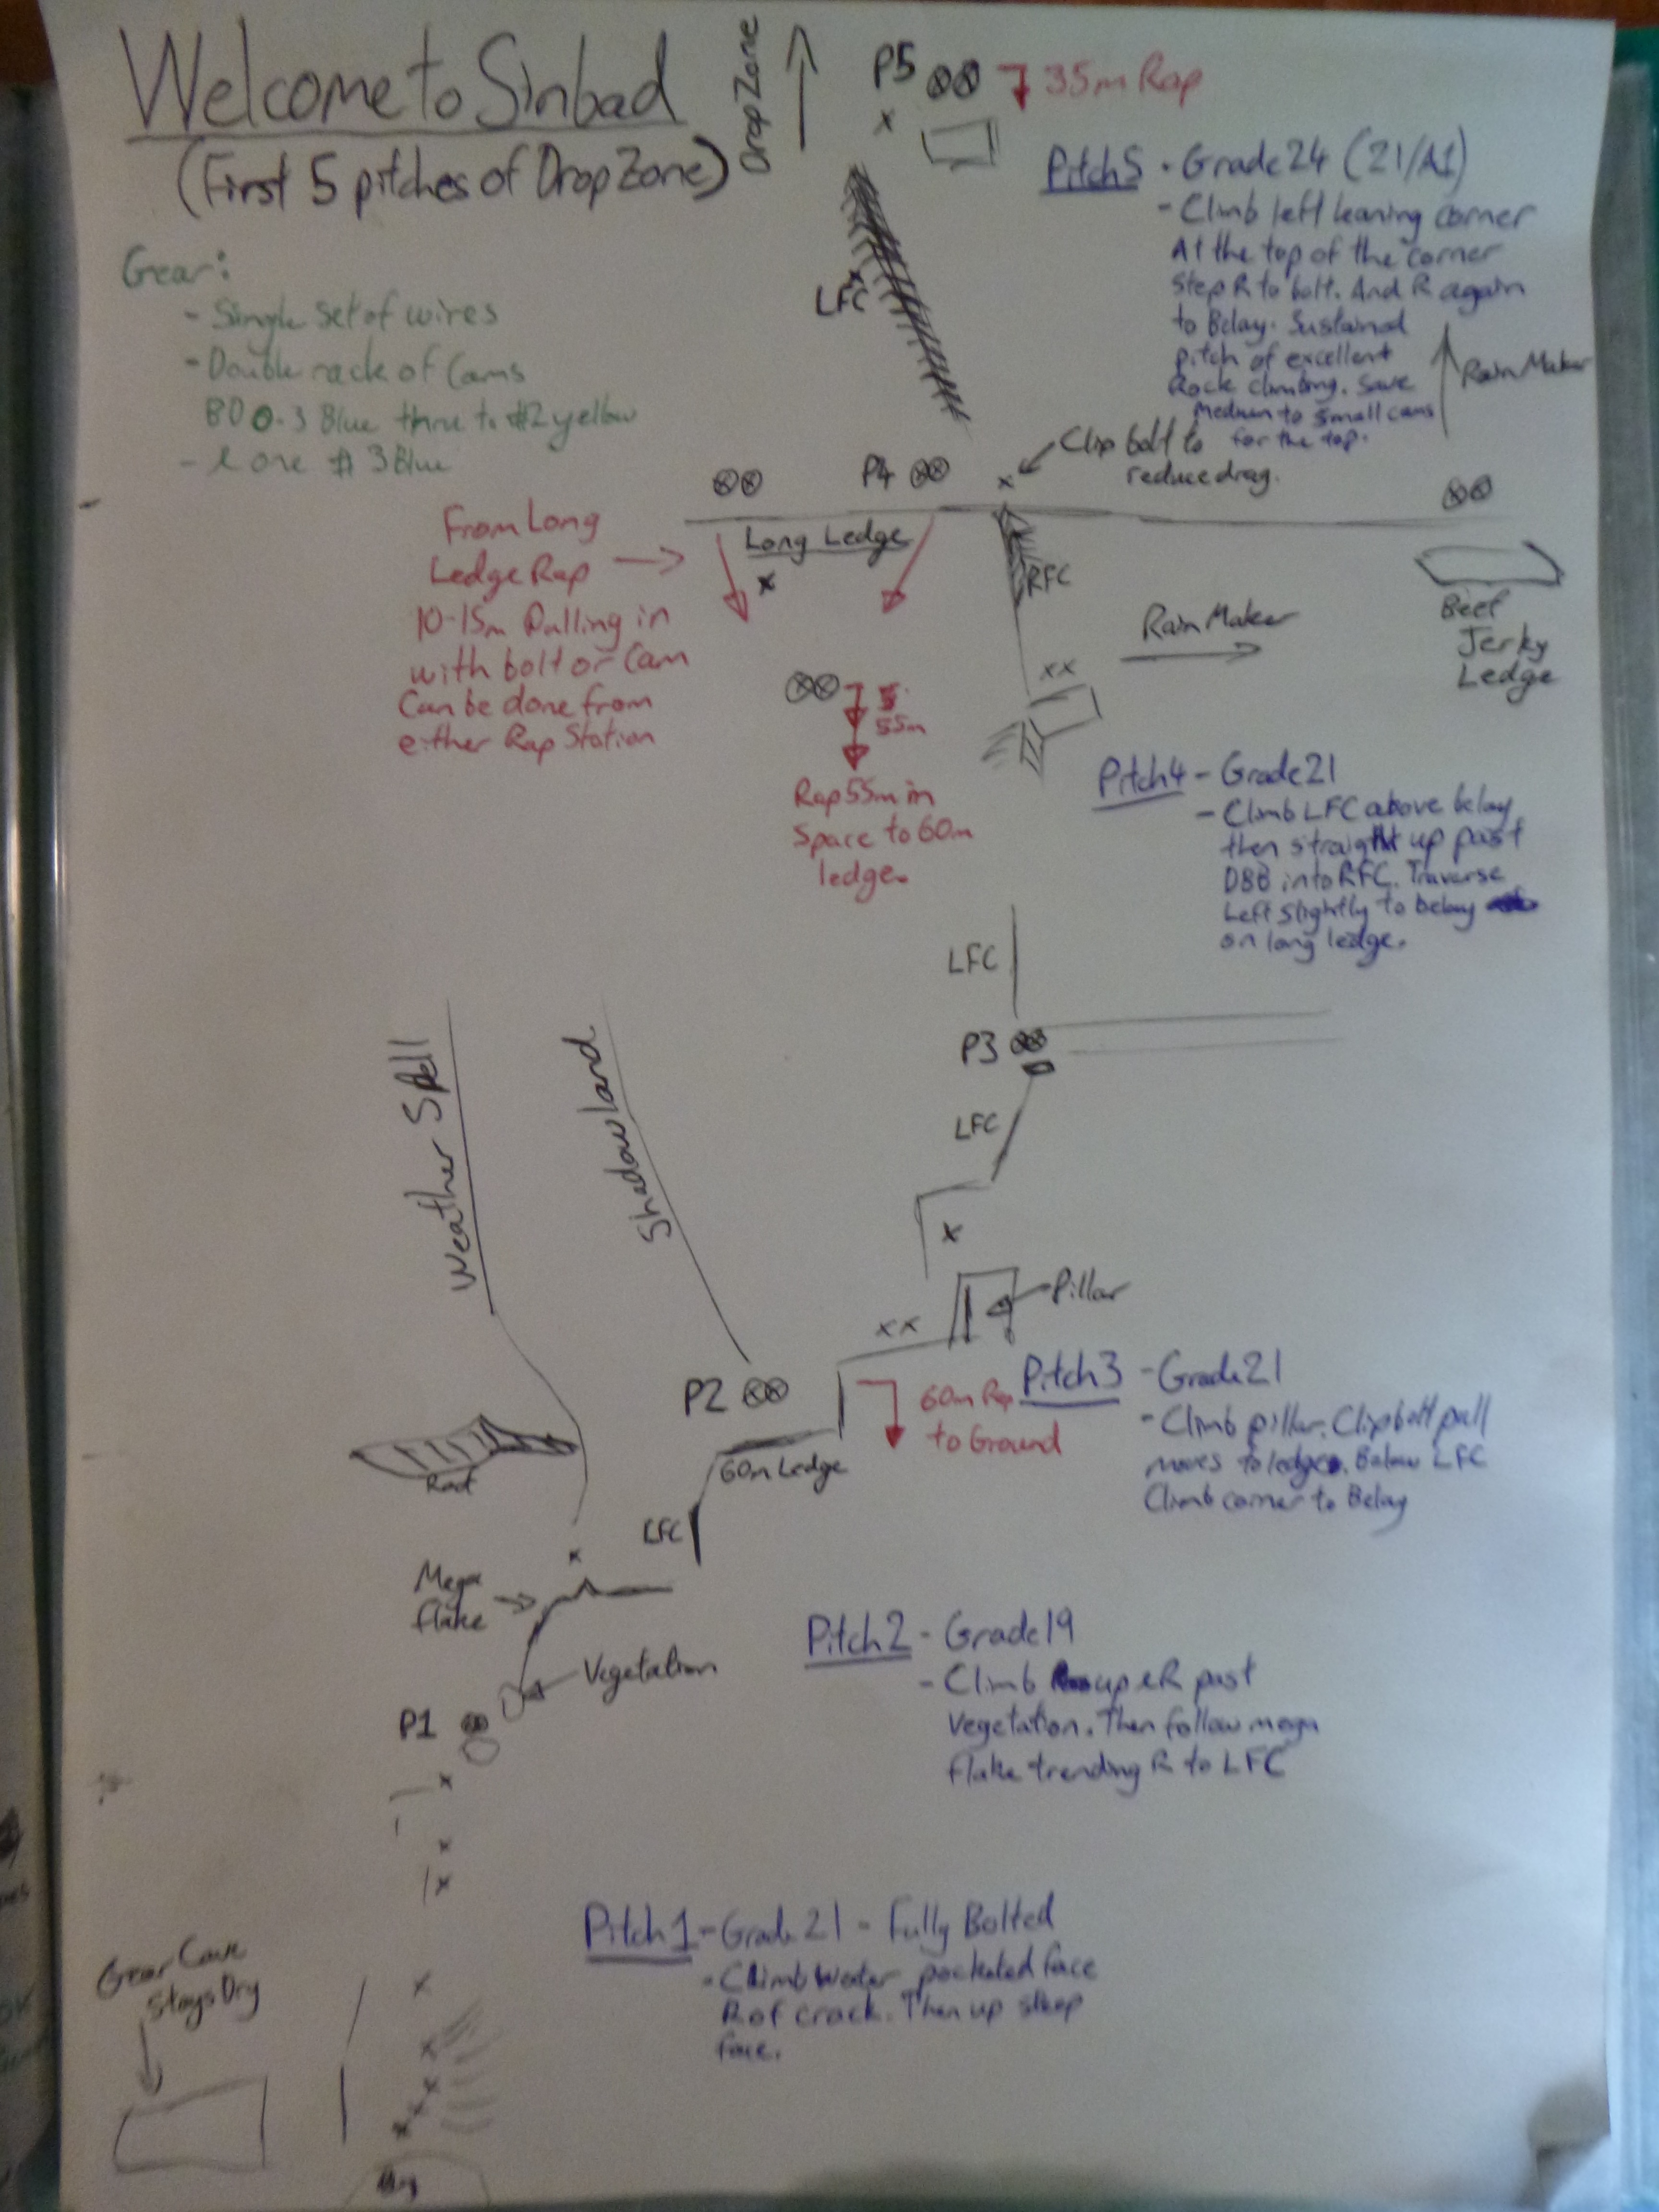 Welcome to Sinbad
(First 5 pitches of DropZone)
Drop Zone
P5
35m Rap
Gear:
- Single set of wires
- Double rack of Cams
BD 0.3 Blue thru to #2 yellow
- & one #3 Blue
Pitch5 - Grade 24 (21/A1)
- Climb left leaning corner
At the top of the corner
Step R to bolt. And R again
to Belay. Sustained
pitch of excellent
Rock climbing. Save
Medium to small cams
for the top.
Rain Maker
LFC
Clip bolt to
reduce drag.
P4
Long Ledge
From Long
Ledge Rap
10-15m Pulling in
with bolt or Cam
Can be done from
either Rap Station
RFC
Rain Maker
Beef
Jerky
Ledge
55m
Rap 55m in
Space to 60m
ledge.
Pitch4 - Grade 21
- Climb LFC above belay
then straight up past
DBB into RFC. Traverse
Left slightly to belay
on long ledge.
LFC
P3
LFC
Weather Spell
Shadowland
Pillar
P2
60m Rap
to Ground
Pitch3 - Grade 21
- Climb pillar. Clip bolt pull
moves to ledge. Below LFC
Climb corner to Belay
60m Ledge
LFC
Mega
flake
Vegetation
Pitch2 - Grade 19
- Climb up & R past
Vegetation. Then follow mega
flake trending R to LFC
P1
Pitch1 - Grade 21 - Fully Bolted
- Climb Water pocketed face
R of crack. Then up steep
face.
Gear Cave
Stays Dry